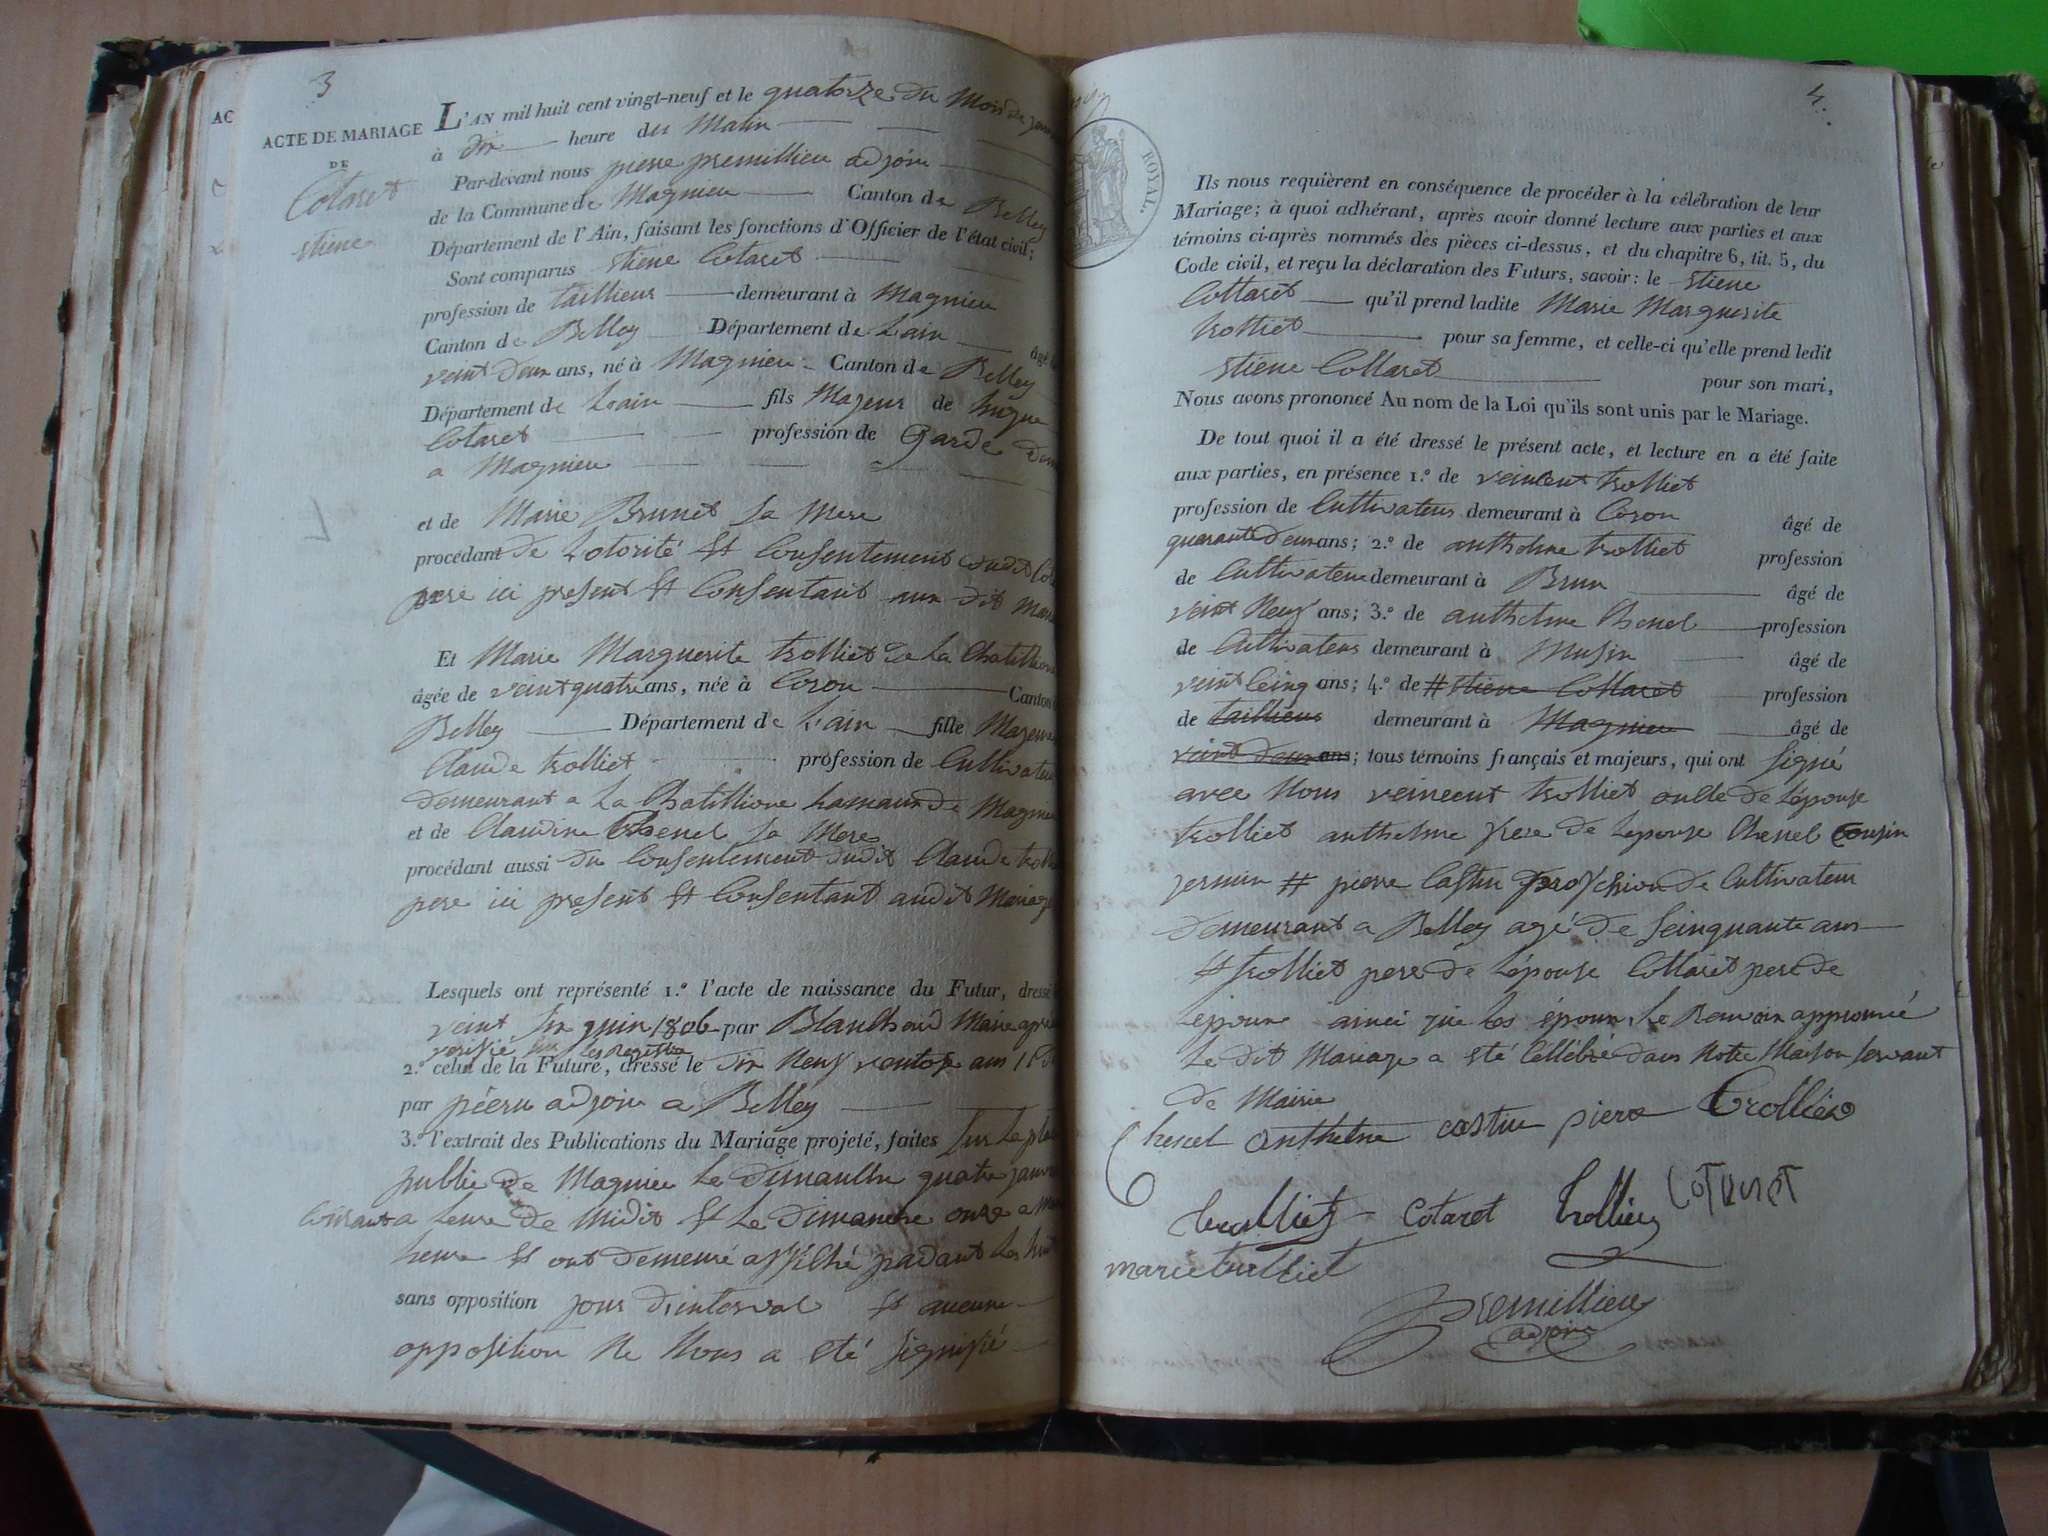 3
ACTE DE MARIAGE
DE
Cotaret
stiene
L'AN mil huit cent vingt-neuf et le quatorze du Mois de janv
à dix heure du Matin
Par-devant nous pierre premillieu adjoin
de la Commune de Magnieu Canton de Belley
Département de l'Ain, faisant les fonctions d'Officier de l'état civil;
Sont comparus stiene Cotaret
profession de taillieur demeurant à Magnieu
Canton de Belley Département de Lain âgé
veint deux ans, né à Magnieu Canton de Belley
Département de Lain fils Majeur de hugue
Cotaret profession de Garde
a Magnieu
et de Marie Brunet sa mere
procédant de Lotorité et Consentement dudit
pere ici present et Consentant aux dit
Et Marie Marguerite trolliet de La Chatillione
âgée de veint quatre ans, née à Coron Canton
Belley Département de Lain fille Majeure
Claude trolliet profession de Cultivateur
demeurant a La Chatillione hamaux de Magnieu
et de Claudine Chenel sa Mere
procédant aussi du Consentement dudit Claude
pere ici present et Consentant audit Mariage
Lesquels ont représenté 1.º l'acte de naissance du Futur, dressé
veint six juin 1806 par Blanchard Maire
verifié sur les registre
2.º celui de la Future, dressé le dix Neuf ventose ans
par adjoin a Belley
3.º l'extrait des Publications du Mariage projeté, faites sur la
public de Magnieu Le dimanche quatre janv
Courant a heure de Midit et Le dimanche onze a
heure et ont demeuré affiché padant les huit
sans opposition jour d'interval et aucune
opposition Ne Nous a eté signifié
4.
ROYAL.
Ils nous requièrent en conséquence de procéder à la célébration de leur
Mariage; à quoi adhérant, après avoir donné lecture aux parties et aux
témoins ci-après nommés des pièces ci-dessus, et du chapitre 6, tit. 5, du
Code civil, et reçu la déclaration des Futurs, savoir: le stiene
Cottaret qu'il prend ladite Marie Marguerite
trolliet pour sa femme, et celle-ci qu'elle prend ledit
stiene Cottaret pour son mari,
Nous avons prononcé Au nom de la Loi qu'ils sont unis par le Mariage.
De tout quoi il a été dressé le présent acte, et lecture en a été faite
aux parties, en présence 1.º de veincent trolliet
profession de Cultivateur demeurant à Coron âgé de
quarante deux ans; 2.º de anthelme trolliet profession
de Cultivateur demeurant à Brun âgé de
veint Neuf ans; 3.º de anthelme Chenel profession
de Cultivateur demeurant à Musin âgé de
veint Ceinq ans; 4.º de # stiene Cottaret profession
de taillieur demeurant à Magnieu âgé de
veint deux ans; tous témoins français et majeurs, qui ont signé
avec Nous veincent trolliet oncle de Lépouse
trolliet anthelme frere de Lepouse Chenel Cousin
jermin # pierre Castin profession de Cultivateur
demeurant a Belley agé de seinquante ans
# trolliet pere de Lépouse Cottaret pere de
Lépoux ainci que Les époux, Le Renvoi approuvé
Le dit Mariage a eté Célébré dans Notre Maison servant
de Mairie
Chenel anthelme castin piere trolliet
trolliet cotaret trolliet COTARET
marie trolliet
premillieu
adjoin